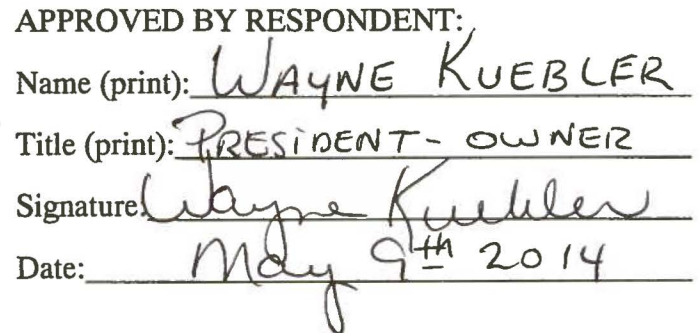 APPROVED BY RESPONDENT:
Name (print): WAYNE KUEBLER
Title (print): PRESIDENT - OWNER
Signature: Wayne Kuebler
Date: May 9th 2014